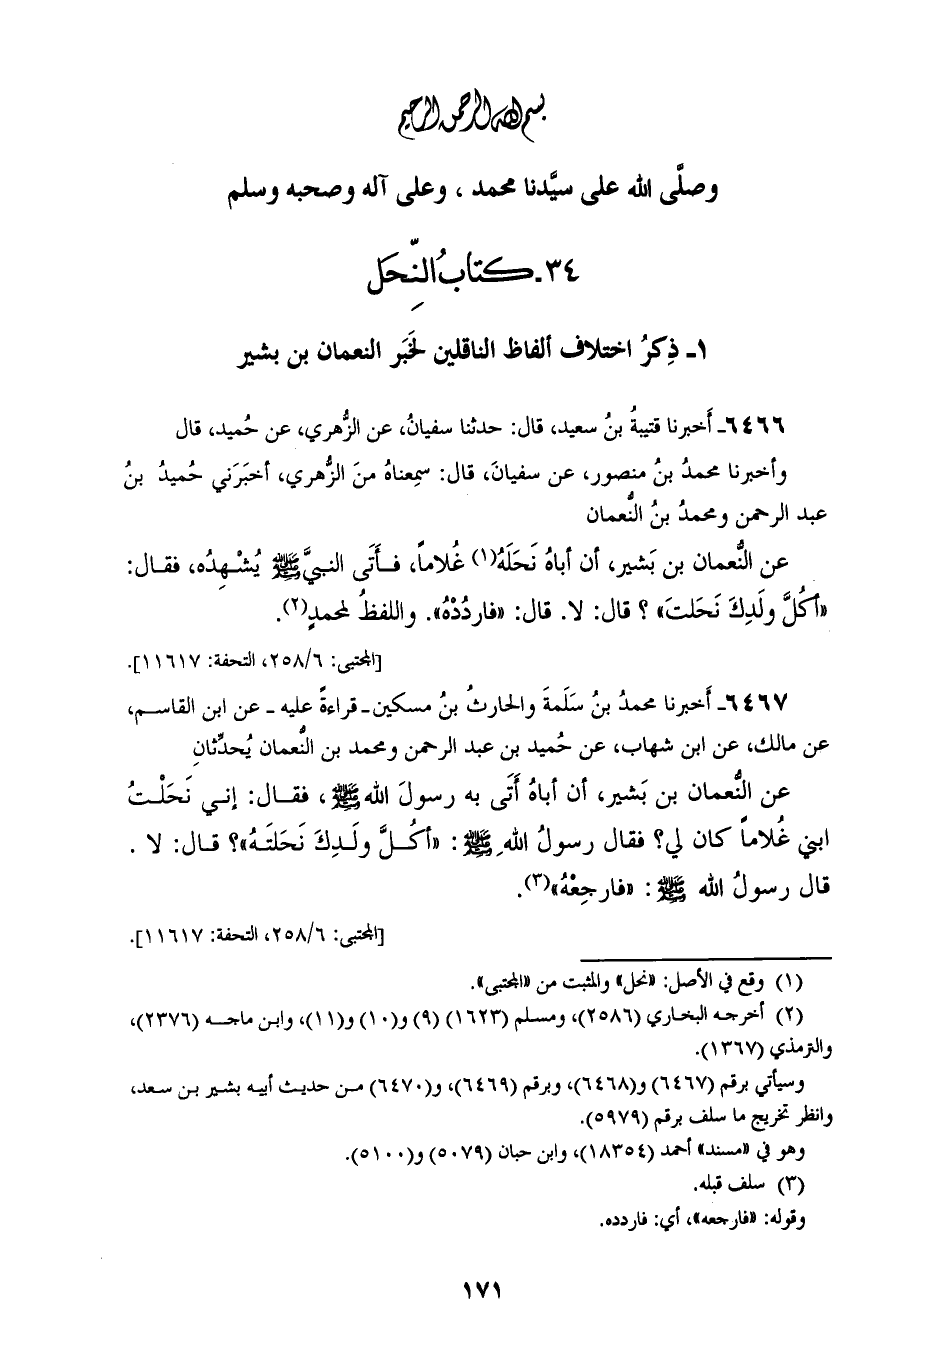 بسم الله الرحمن الرحيم
وصلَّى الله على سيَّدنا محمد ، وعلى آله وصحبه وسلم
٣٤ـ كتابُ النِّحَل
١ـ ذِكرُ اختلاف ألفاظ الناقلين لخَبَر النعمان بن بشير
٦٤٦٦ـ أَخبرنا قتيبةُ بنُ سعيد، قال: حدثنا سفيانُ، عن الزُّهري، عن حُميد، قال
وأخبرنا محمدُ بنُ منصور، عن سفيانَ، قال: سمِعناهُ منَ الزُّهري، أخبَرَني حُميدُ بنُ
عبد الرحمن ومحمدُ بنُ النُّعمان
عن النُّعمان بن بَشير، أن أباهُ نَحَلَهُ(١) غُلاماً، فأَتَى النبيَّ ﷺ يُشْهِدُه، فقال:
«أكُلَّ ولَدِكَ نَحَلتَ» ؟ قال: لا. قال: «فاردُدْهُ». واللفظُ لمحمدٍ(٢).
[المجتبى: ٢٥٨/٦، التحفة: ١١٦١٧].
٦٤٦٧ـ أَخبرنا محمدُ بنُ سَلَمةَ والحارثُ بنُ مسكين ـ قراءةً عليه ـ عن ابن القاسم،
عن مالك، عن ابن شهاب، عن حُميد بن عبد الرحمن ومحمد بن النُّعمان يُحدِّثان
عن النُّعمان بن بَشير، أن أباهُ أَتَى به رسولَ الله ﷺ ، فقال: إني نَحَلْتُ
ابني غُلاماً كان لي؟ فقال رسولُ اللهِ ﷺ : «أكُلَّ ولَدِكَ نَحَلتَهُ»؟ قال: لا .
قال رسولُ الله ﷺ : «فارجِعْهُ»(٣).
[المجتبى: ٢٥٨/٦، التحفة: ١١٦١٧].
(١) وقع في الأصل: «نحل» والمثبت من «المجتبى».
(٢) أخرجه البخاري (٢٥٨٦)، ومسلم (١٦٢٣) (٩) و(١٠) و(١١)، وابن ماجه (٢٣٧٦)،
والترمذي (١٣٦٧).
وسيأتي برقم (٦٤٦٧) و(٦٤٦٨)، وبرقم (٦٤٦٩)، و(٦٤٧٠) من حديث أبيه بشير بن سعد،
وانظر تخريج ما سلف برقم (٥٩٧٩).
وهو في «مسند» أحمد (١٨٣٥٤)، وابن حبان (٥٠٧٩) و(٥١٠٠).
(٣) سلف قبله.
وقوله: «فارجعه»، أي: فاردده.
١٧١